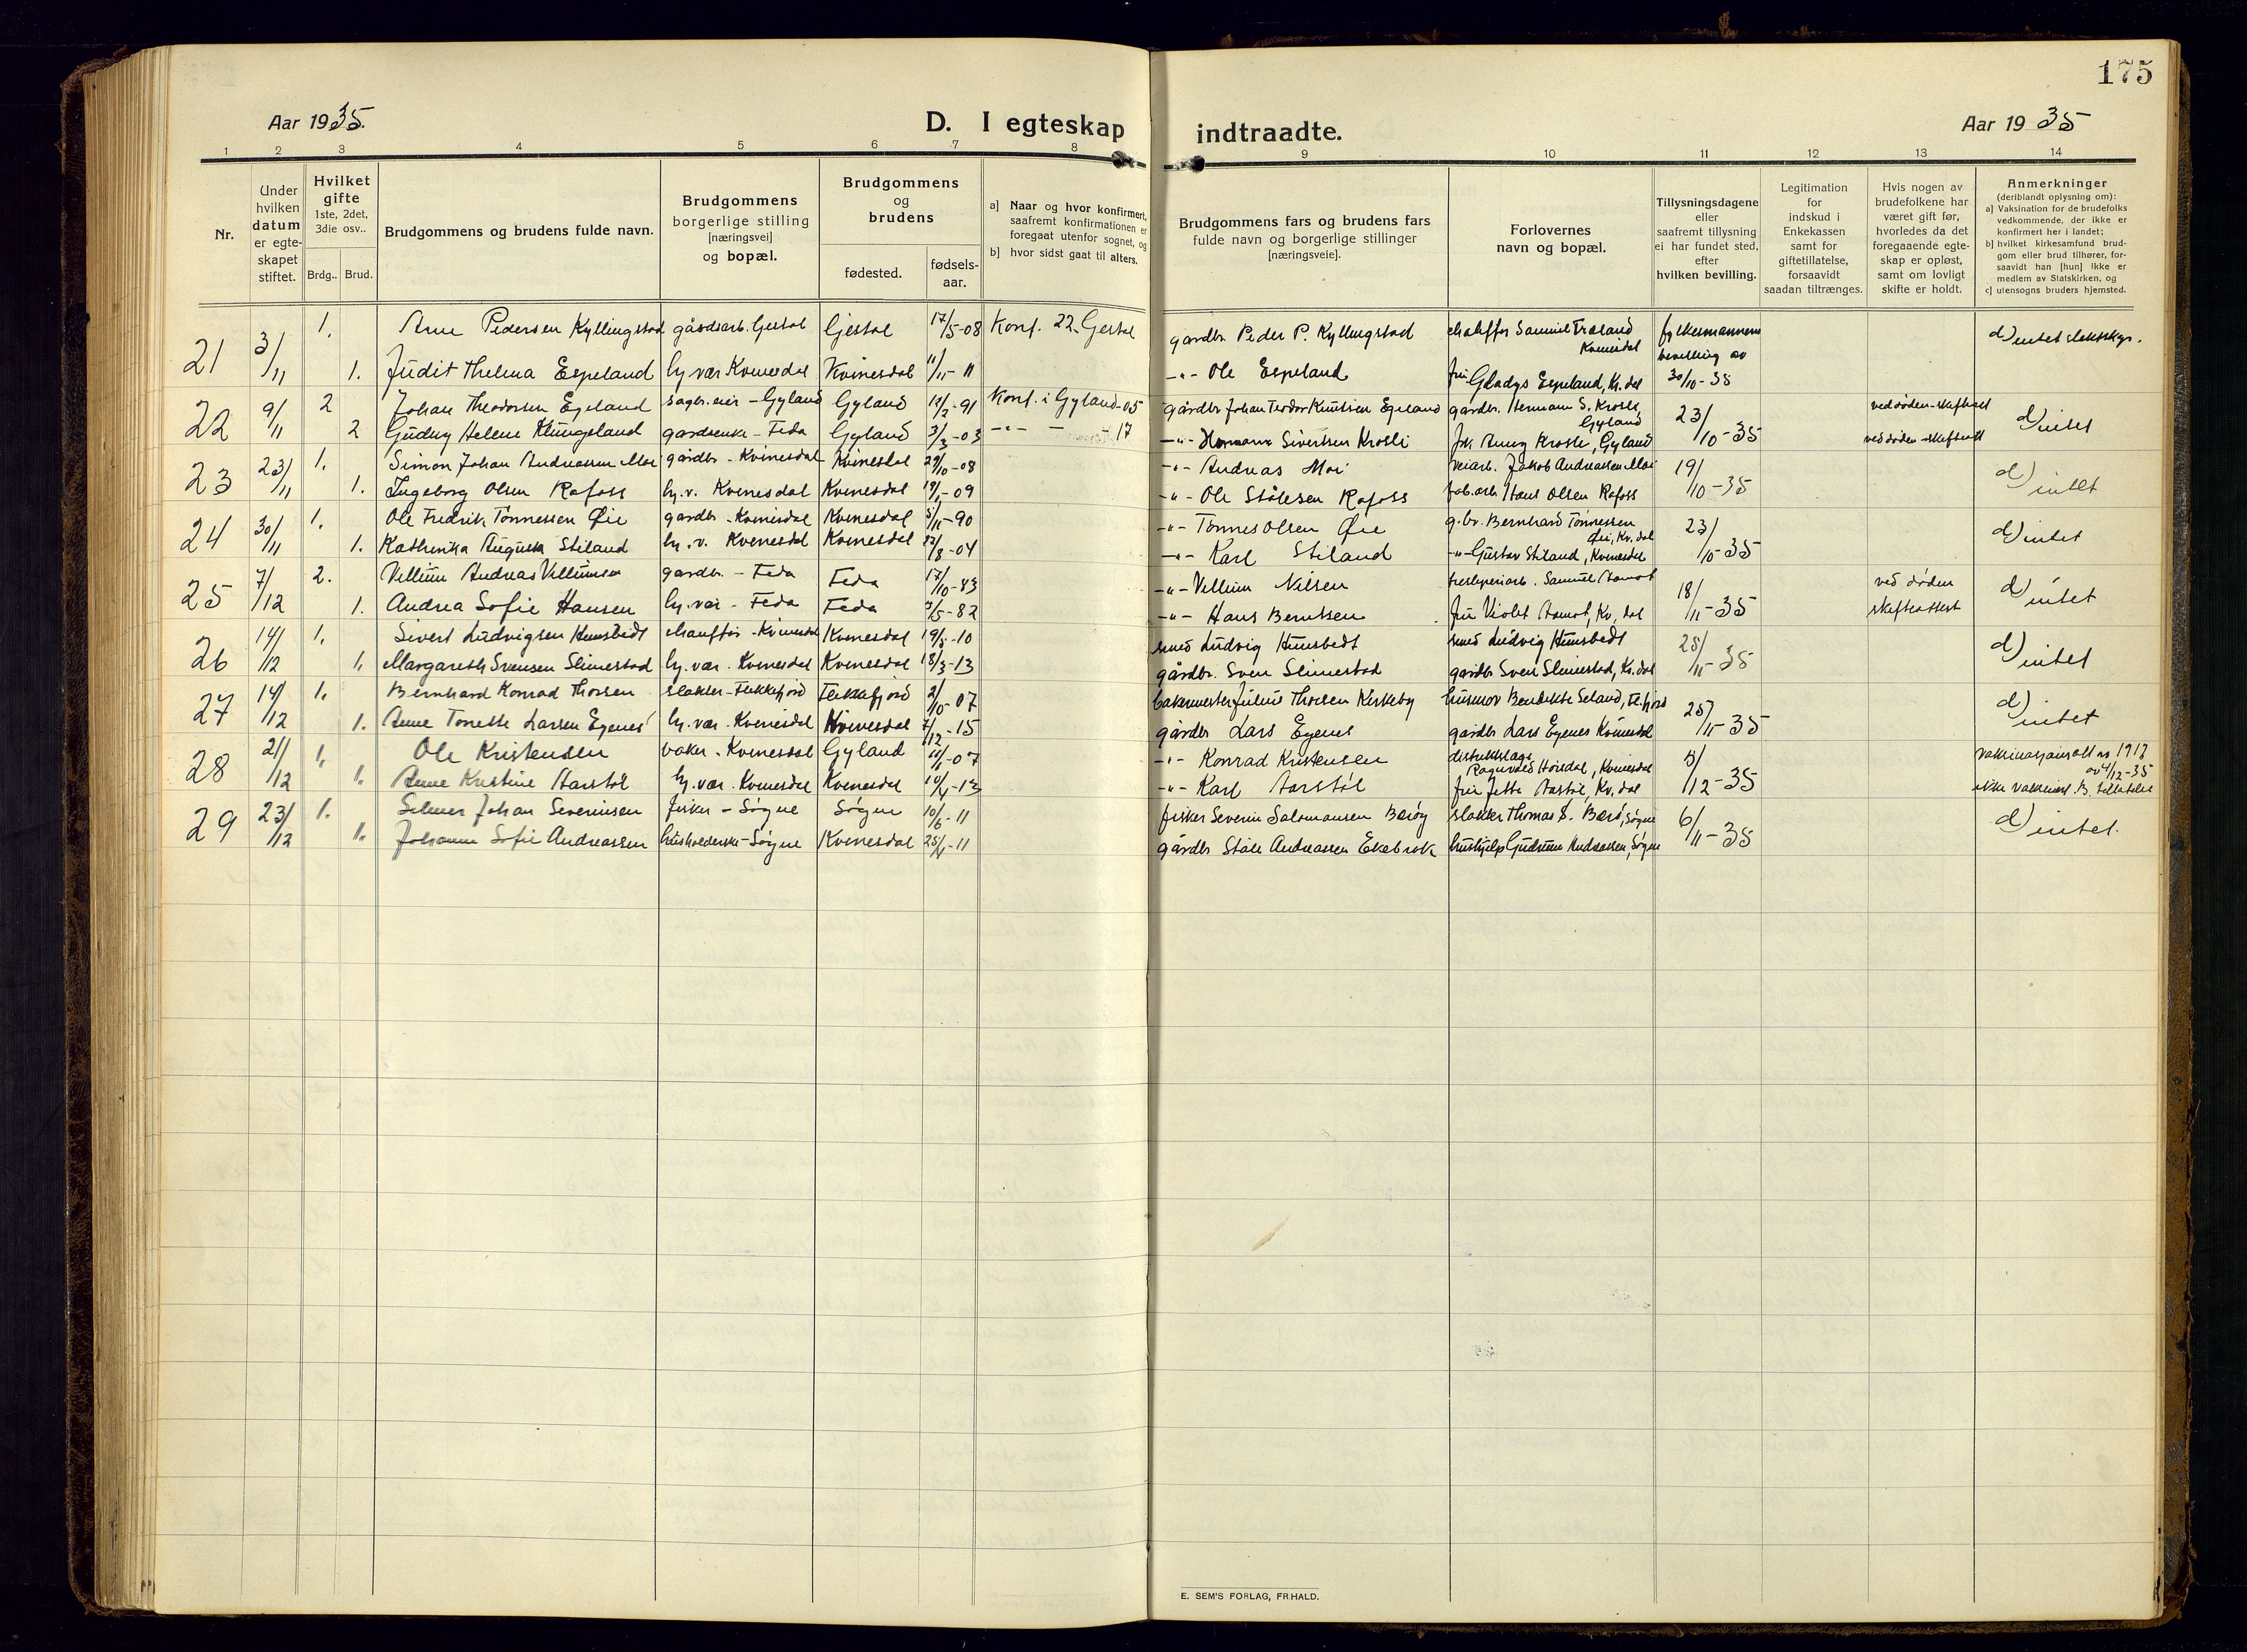 175
Aar 1935.
D. I egteskap indtraadte.
Aar 1935
1 2 3 4 5 6 7 8 9 10 11 12 13 14
Nr.
Under hvilken datum er egte- skapet stiftet.
Hvilket gifte 1ste, 2det, 3die osv..
Brdg.. Brud.
Brudgommens og brudens fulde navn.
Brudgommens borgerlige stilling [næringsvei] og bopæl.
Brudgommens og brudens
fødested.
fødsels- aar.
a] Naar og hvor konfirmert, saafremt konfirmationen er foregaat utenfor sognet, og
b] hvor sidst gaat til alters.
Brudgommens fars og brudens fars fulde navn og borgerlige stillinger [næringsveie].
Forlovernes navn og bopæl.
Tillysningsdagene eller saafremt tillysning ei har fundet sted, efter hvilken bevilling.
Legitimation for indskud i Enkekassen samt for giftetillatelse, forsaavidt saadan tiltrænges.
Hvis nogen av brudefolkene har været gift før, hvorledes da det foregaaende egte- skap er opløst, samt om lovligt skifte er holdt.
Anmerkninger (deriblandt oplysning om):
a] Vaksination for de brudefolks vedkommende, der ikke er konfirmert her i landet;
b] hvilket kirkesamfund brud- gom eller brud tilhører, for- saavidt han [hun] ikke er medlem av Statskirken, og
c] utensogns bruders hjemsted.
21 3/11 1. Arne Pedersen Kyllingstad gårdsarb. Gjestal Gjestal 17/5-08 Konf. 22 Gjestal gårdbr. Peder P. Kyllingstad chauffør Samuel Træland Kvinesdal fylkesmannens bevilling av 30/10-35 d) intet slektskap.
1. Judit Thelma Espeland hj. vær Kvinesdal Kvinesdal 11/11-11 -"- Ole Espeland fru Gladys Espeland, Kv.dal
22 9/11 2 Johan Theodorsen Egeland sagbr. eier - Gyland Gyland 12/2-91 Konf. i Gyland-05 gårdbr Johan Teodor Knutsen Egeland gårdbr. Hermann S. Krosli, Gyland 23/10-35 ved døden-skifteatt d) intet
2 Gudny Helene Klungeland gårdsenke - Feda Gyland 3/3-03 -"- - -17 -"- Hermann Sivertsen Krosli frk Anny Krosli, Gyland ved døden-skifteatt
23 23/11 1. Simon Johan Andreassen Moi gårdbr - Kvinesdal Kvinesdal 29/10-08 -"- Andreas Moi veiarb. Jakob Andreassen Moi 19/10-35 d) intet
1. Ingeborg Olsen Rafoss hj. v. Kvinesdal Kvinesdal 19/1-09 -"- Ole Ståtesen Rafoss fab.arb. Hans Olsen Rafoss
24 30/11 1. Ole Fredrik Tønnessen Øie gårdbr - Kvinesdal Kvinesdal 5/11-90 -"- Tønnes Olsen Øie g.br. Bernhard Tønnessen Øie, Kv.dal 23/10-35 d) intet
1. Kathinka Augusta Stiland hj. v. Kvinesdal Kvinesdal 22/8-04 -"- Karl Stiland -"- Gustav Stiland, Kvinesdal
25 7/12 2. Vellum Andreas Vellumsen gårdbr. - Feda Feda 17/10-83 -"- Vellum Nilsen Samuel Aamot 18/11-35 ved døden skifteattest d) intet
1. Andrea Sofie Hansen hj. vær - Feda Feda 3/5-82 -"- Hans Berntsen fru Violet Aamot, Kv. dal
26 14/12 1. Sivert Ludvigsen Hunsbedt chauffør - Kvinesdal Kvinesdal 19/8-10 smed Ludvig Hunsbedt smed Ludvig Hunsbedt 28/11-35 d) intet
1. Margareth Svensen Slimestad hj. vær. Kvinesdal Kvinesdal 18/3-13 gårdbr. Sven Slimestad gårdbr Sven Slimestad, Kv.dal
27 14/12 1. Bernhard Konrad Thorsen slakter - Flekkefjord Flekkefjord 2/10-07 bakermester Julius Thorsen Kirkeby husmor Bendikte Seland, Fl.fjord 25/11-35 d) intet
1. Anne Tonette Larsen Egenes hj. vær. Kvinesdal Kvinesdal 7/12-15 gårdbr Lars Egenes gårdbr Lars Egenes Kvinesdal
28 21/12 1. Ole Kristensen baker - Kvinesdal Gyland 11/1-07 -"- Konrad Kristensen distriktslege Ragnvald Hørsdal, Kvinesdal 5/12-35 vaksinasjonsatt av 1917 av 4/12-35
1. Anne Kristine Aarstøl hj. vær. Kvinesdal Kvinesdal 10/4-13 -"- Karl Aarstøl fru Jette Aarstøl, Kv. dal ikke vaksinert.
29 23/12 1. Selmer Johan Severinsen fisker - Søgne Søgne 10/6-11 fisker Severin Salomonsen Borøy slakter Thomas S. Borø, Søgne 6/11-35 d) intet.
1. Johanna Sofie Andreassen husholderske - Søgne Kvinesdal 25/4-11 gårdbr Ståle Andreassen Ekebrok hushjelp Gudrun Andreassen, Søgne
E. SEM'S FORLAG, FR.HALD.